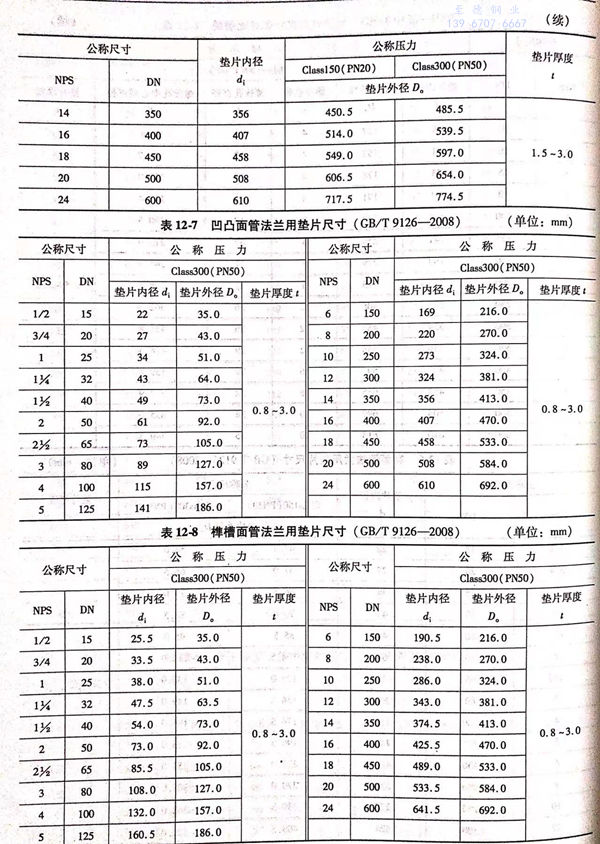 至德钢业
139-6707-6667
(续)
公称尺寸 垫片内径 dᵢ 公称压力 垫片厚度 t
NPS DN Class150(PN20) Class300(PN50)
垫片外径 Dₒ
14 350 356 450.5 485.5 1.5~3.0
16 400 407 514.0 539.5
18 450 458 549.0 597.0
20 500 508 606.5 654.0
24 600 610 717.5 774.5
表 12-7 凹凸面管法兰用垫片尺寸(GB/T 9126—2008) (单位：mm)
公称尺寸 公称压力 公称尺寸 公称压力
Class300(PN50) Class300(PN50)
NPS DN 垫片内径 dᵢ 垫片外径 Dₒ 垫片厚度 t NPS DN 垫片内径 dᵢ 垫片外径 Dₒ 垫片厚度 t
1/2 15 22 35.0 0.8~3.0 6 150 169 216.0 0.8~3.0
3/4 20 27 43.0 8 200 220 270.0
1 25 34 51.0 10 250 273 324.0
1¼ 32 43 64.0 12 300 324 381.0
1½ 40 49 73.0 14 350 356 413.0
2 50 61 92.0 16 400 407 470.0
2½ 65 73 105.0 18 450 458 533.0
3 80 89 127.0 20 500 508 584.0
4 100 115 157.0 24 600 610 692.0
5 125 141 186.0
表 12-8 榫槽面管法兰用垫片尺寸(GB/T 9126—2008) (单位：mm)
公称尺寸 公称压力 公称尺寸 公称压力
Class300(PN50) Class300(PN50)
NPS DN 垫片内径 dᵢ 垫片外径 Dₒ 垫片厚度 t NPS DN 垫片内径 dᵢ 垫片外径 Dₒ 垫片厚度 t
1/2 15 25.5 35.0 0.8~3.0 6 150 190.5 216.0 0.8~3.0
3/4 20 33.5 43.0 8 200 238.0 270.0
1 25 38.0 51.0 10 250 286.0 324.0
1¼ 32 47.5 63.5 12 300 343.0 381.0
1½ 40 54.0 73.0 14 350 374.5 413.0
2 50 73.0 92.0 16 400 425.5 470.0
2½ 65 85.5 105.0 18 450 489.0 533.0
3 80 108.0 127.0 20 500 533.5 584.0
4 100 132.0 157.0 24 600 641.5 692.0
5 125 160.5 186.0